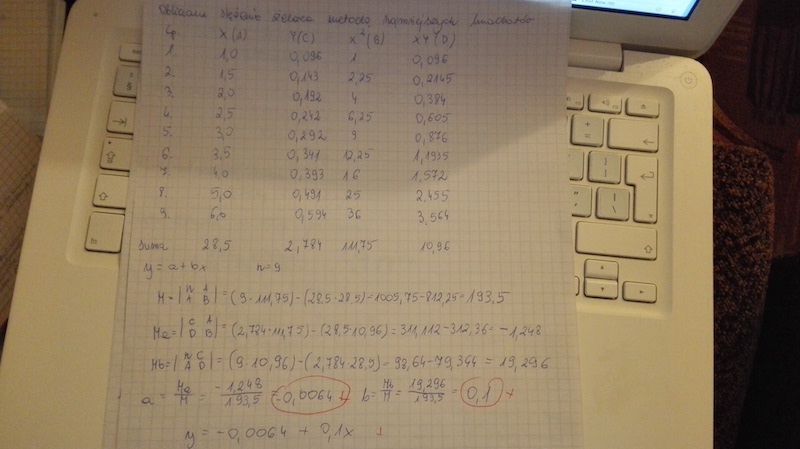 Obliczam stężenie żelaza metodą najmniejszych kwadratów
Lp. X (A) Y (C) x² (B) xY (D)
1. 1,0 0,096 1 0,096
2. 1,5 0,143 2,25 0,2145
3. 2,0 0,192 4 0,384
4. 2,5 0,242 6,25 0,605
5. 3,0 0,292 9 0,876
6. 3,5 0,341 12,25 1,1935
7. 4,0 0,393 16 1,572
8. 5,0 0,491 25 2,455
9. 6,0 0,594 36 3,564
Suma 28,5 2,784 111,75 10,96
y = a + bx n = 9
M = | n A | = (9·111,75) - (28,5·28,5) = 1005,75 - 812,25 = 193,5
A B
Ma = | C A | = (2,784·111,75) - (28,5·10,96) = 311,112 - 312,36 = -1,248
D B
Mb = | n C | = (9·10,96) - (2,784·28,5) = 98,64 - 79,344 = 19,296
A D
a = Ma/M = -1,248/193,5 = -0,0064 + b = Mb/M = 19,296/193,5 = 0,1 +
y = -0,0064 + 0,1x +